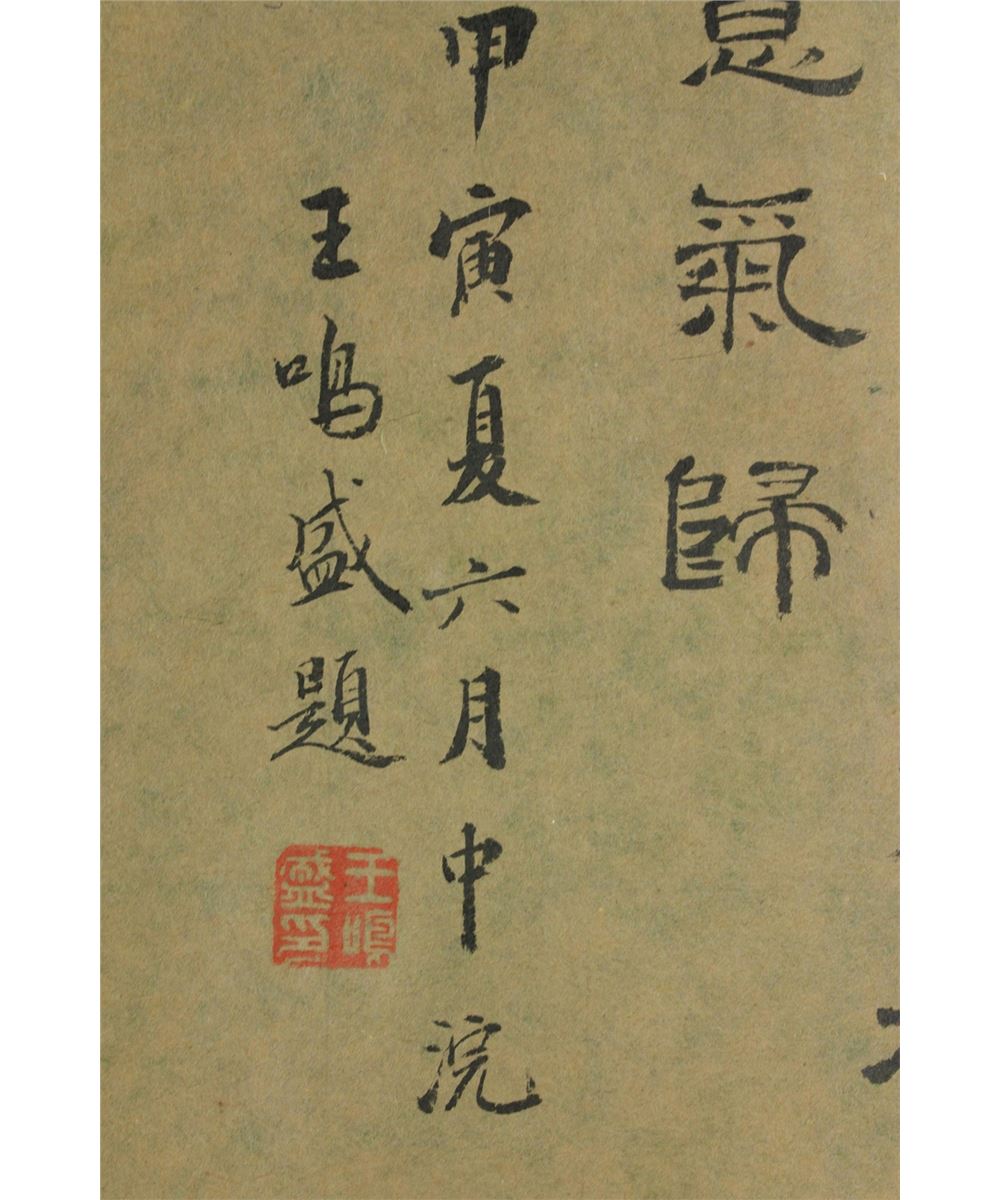 息氣歸
甲寅夏六月中浣
王鳴盛題
王鳴盛印